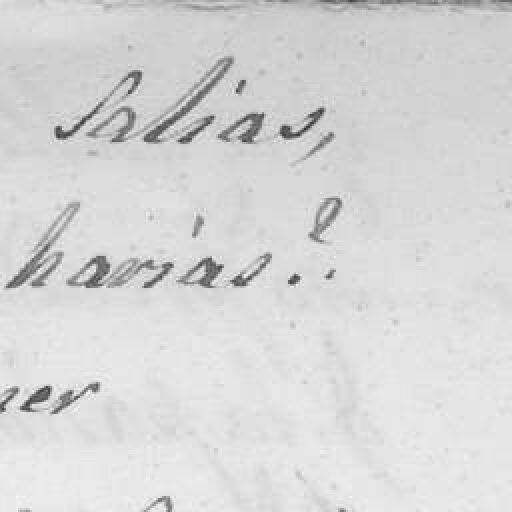 Salias,
havias.?.
ner